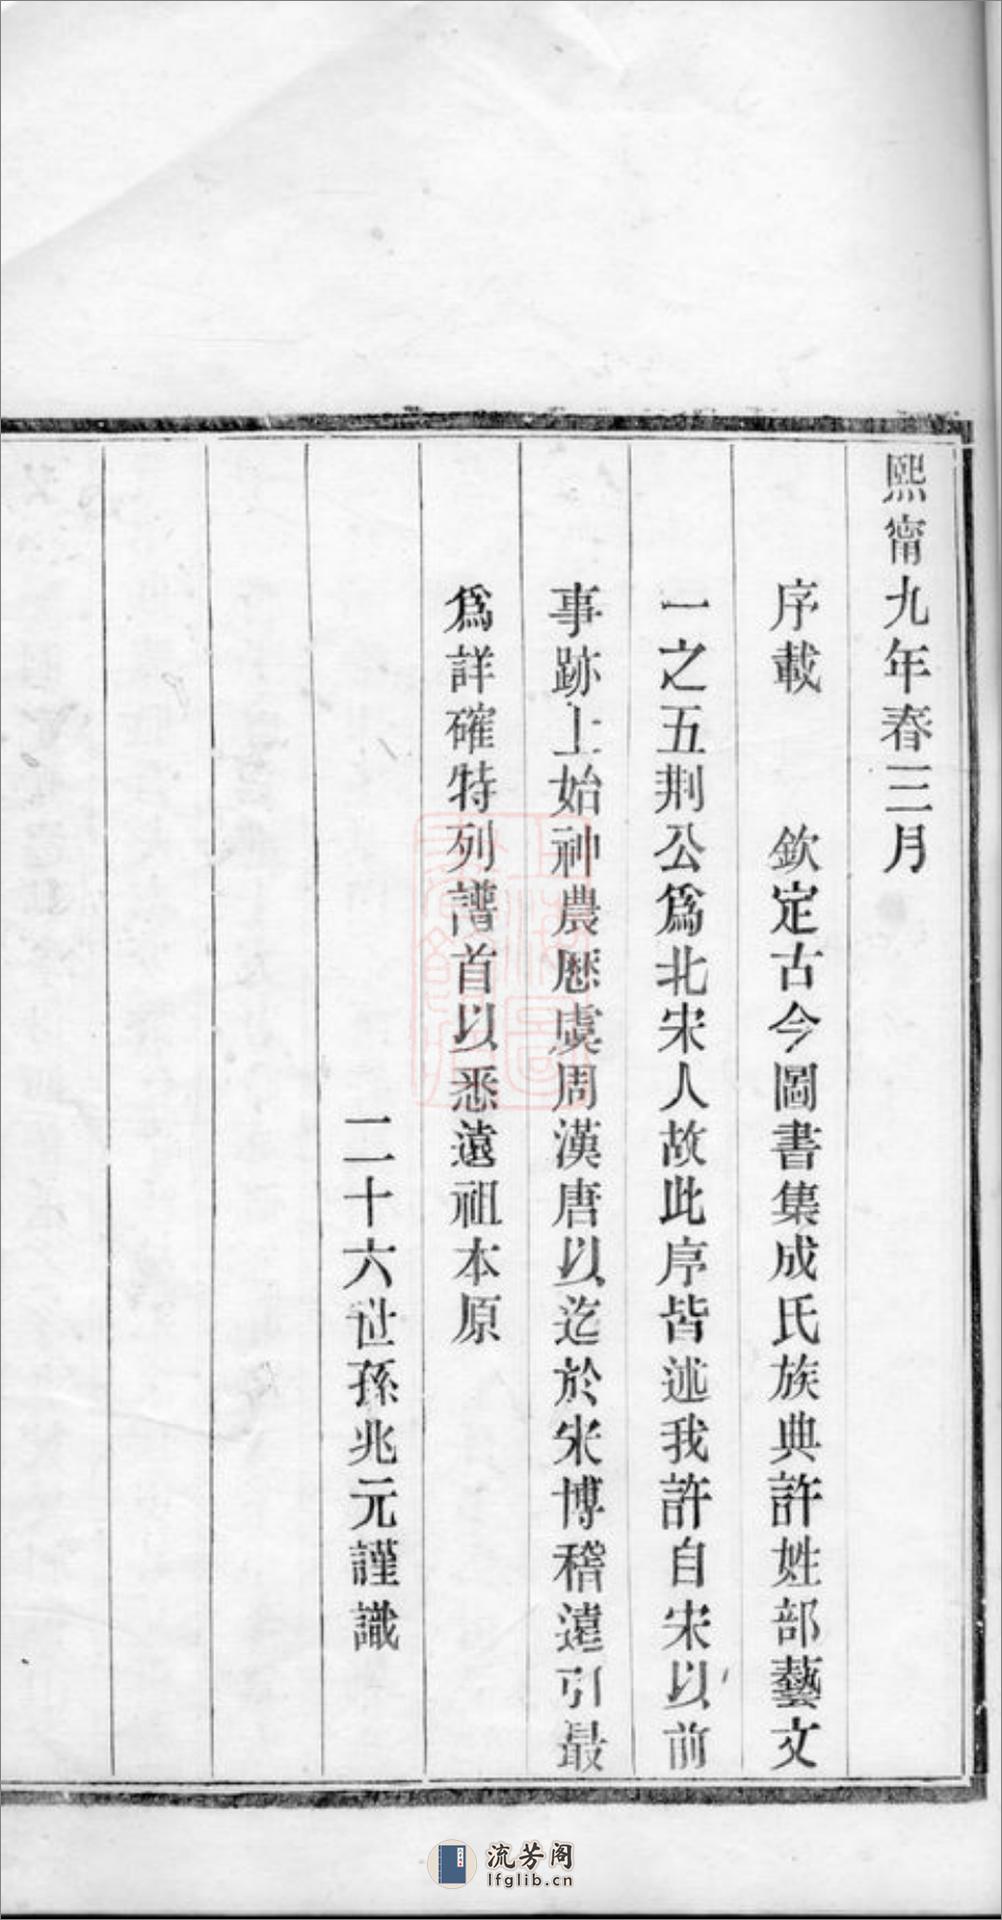 熙甯九年春三月
序載　欽定古今圖書集成氏族典許姓部藝文
一之五荆公爲北宋人故此序皆述我許自宋以前
事跡上始神農厯虞周漢唐以迄於宋博稽遠引最
爲詳確特列譜首以悉遠祖本原
二十六世孫兆元謹識
流芳阁
lfglib.cn